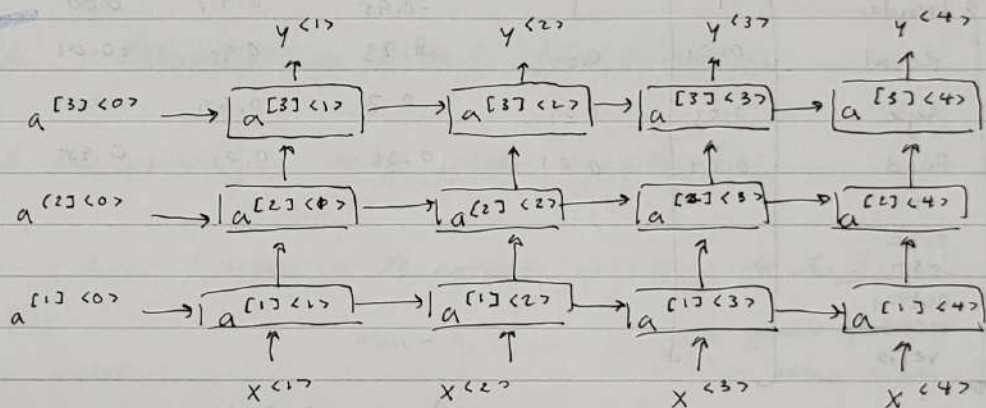 y<1> y<2> y<3> y<4>
a[3]<0> a[3]<1> a[3]<2> a[3]<3> a[3]<4>
a[2]<0> a[2]<1> a[2]<2> a[2]<3> a[2]<4>
a[1]<0> a[1]<1> a[1]<2> a[1]<3> a[1]<4>
x<1> x<2> x<3> x<4>